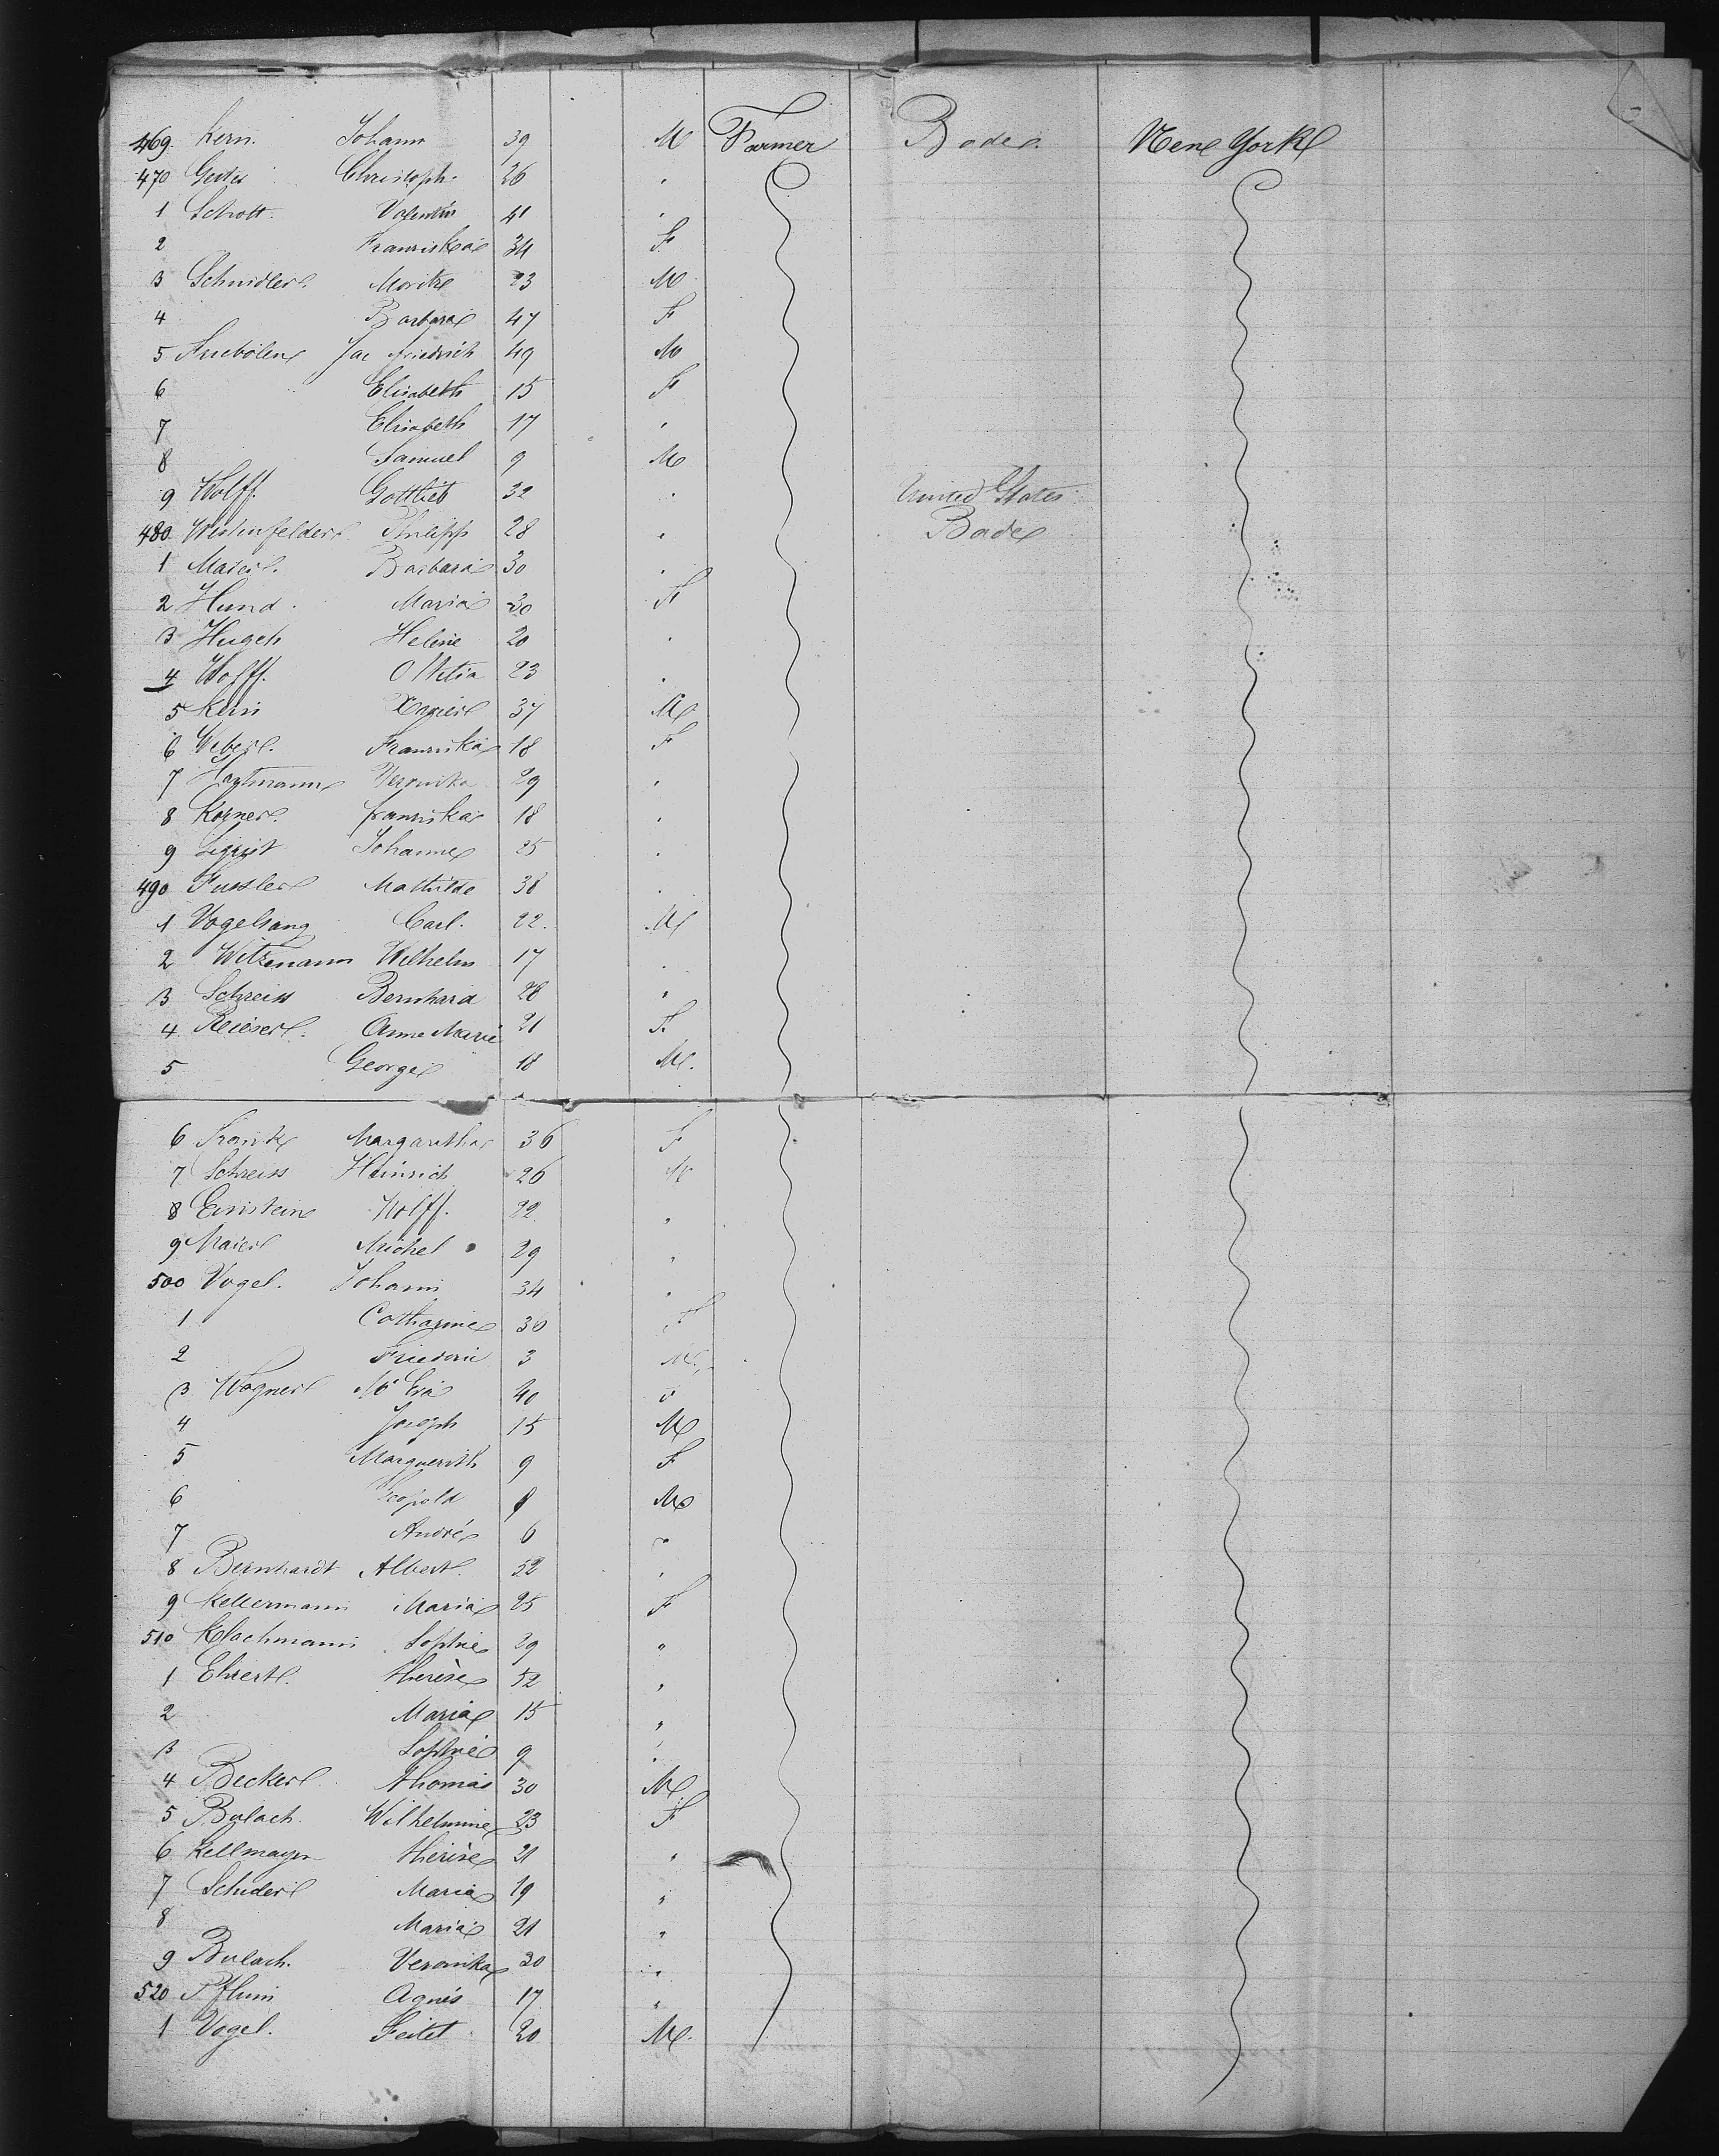 469. Kern. Johann 39 M Farmer Bade. New York
470 Christoph. 26 "
1 Schott. Valentin 41 "
2 Franziska 34 F
3 Schnidler. Moritz 23 M
4 Barbara 47 F
5 Jac Friedrich 49 M
6 Elisabeth 15 F
7 Elisabeth 17 "
8 Samuel 9 M
9 Wolff. Gottlieb 32 " United States
480 Philipp 28 " Bade
1 Maier. Barbara 30 "
2 Hund. Maria 30 F
3 Hugeh Helene 20 "
4 Wolff. 23 "
5 Kern Xavier 37 M
6 Weber. Franziska 18 F
7 Hartmann Veronika 29 "
8 Korner. Franziska 18 "
9 Sigrist Johanne 25 "
490 Fussler Mathilde 38 "
1 Vogelsang Carl. 22. M
2 Witzmann Wilhelm 17 "
3 Schreiss Bernhard 28 "
4 Reieser. Anne Marie 21 F.
5 George 18 M.
6 Frank Margaretha 36 F
7 Schreiss Heinrich 26 M
8 Einstein Wolff. 22. "
9 Maier Michel 29 "
500 Vogel. Johann 34 "
1 Catharine 30 F
2 3 M.
3 Wagner Eva 40 "
4 Joseph 15 M
5 Marguerith 9 F
6 Leopold M
7 André 6 "
8 Bernhardt Albert. 52 "
9 Kellermann Maria 25 F
510 Klachmann Sophie 29 "
1 Ehrert. Therèse 52 "
2 Maria 15 "
3 Sophie 9 "
4 Becker Thomas 30 M
5 Bulach. Wilhelmine 23 F
6 Kellmayer Therèse 21 "
7 Schuder Maria 19 "
8 Maria 21 "
9 Bulach. Veronika 20 "
520 Pflum Agnés 17 "
1 Vogel. 20 M.